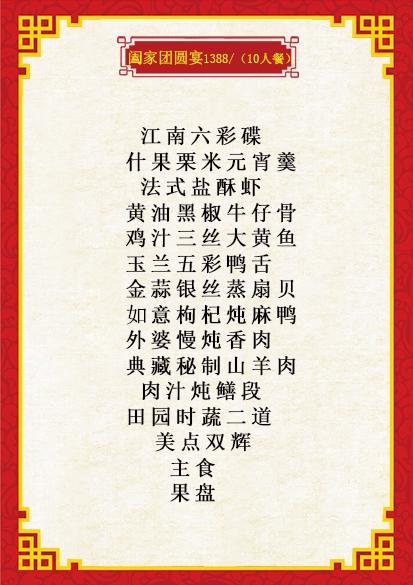 阖家团圆宴1388/（10人餐）
江南六彩碟
什果栗米元宵羹
法式盐酥虾
黄油黑椒牛仔骨
鸡汁三丝大黄鱼
玉兰五彩鸭舌
金蒜银丝蒸扇贝
如意枸杞炖麻鸭
外婆慢炖香肉
典藏秘制山羊肉
肉汁炖鳝段
田园时蔬二道
美点双辉
主食
果盘